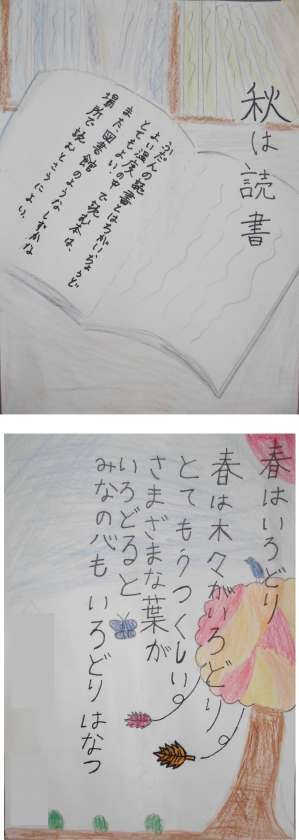 秋は読書
ふだんの読書とはちがい、ちょうど
よい温度の中で読む本は、
とてもよい。
また、図書館のようなしずかな
場所で読むとさらによい。
春はいろどり
春は木々がいろどり
とてもうつくしい。
さまざまな葉が
いろどると
みなの心も いろどりはなつ